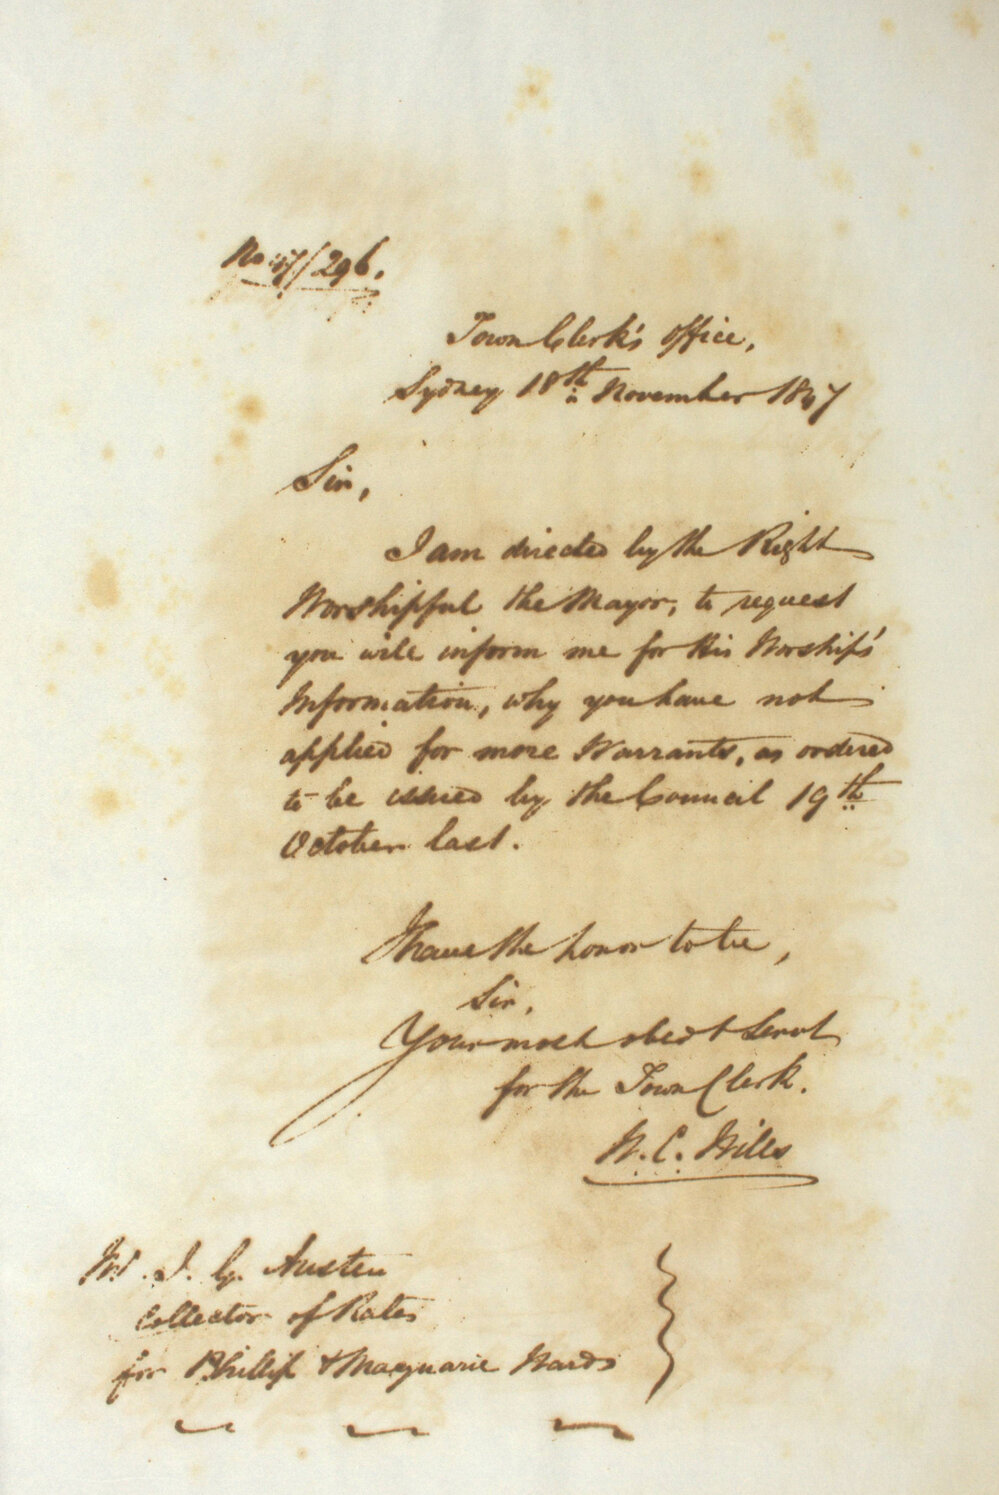 No. 47/296.
Town Clerk's Office,
Sydney 18th November 1847
Sir,
I am directed by the Right
Worshipful the Mayor, to request
you will inform me for His Worship's
Information, why you have not
applied for more Warrants, as ordered
to be issued by the Council 19th
October last.
I have the honor to be,
Sir,
Your most obedt Servt
for the Town Clerk.
W. C. Wills
Mr. J. G. Austen
Collector of Rates
for Phillip & Macquarie Wards